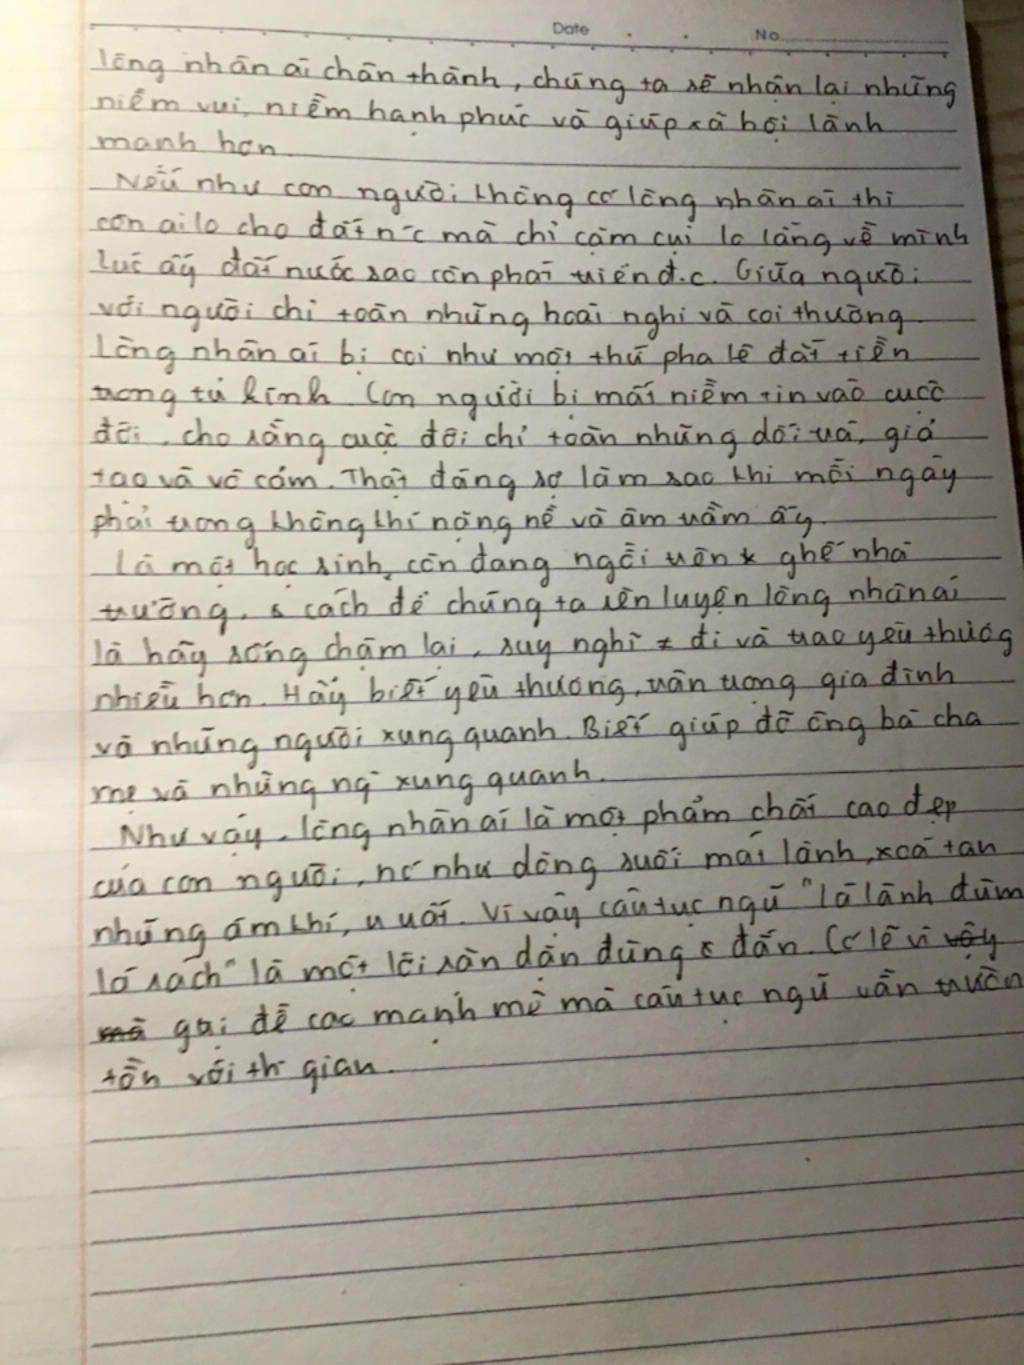 Date No
lòng nhân ái chân thành, chúng ta sẽ nhận lại những
niềm vui, niềm hạnh phúc và giúp xã hội lành
mạnh hơn.
Nếu như con người không có lòng nhân ái thì
còn ai lo cho đất n'c mà chỉ cặm cụi lo lắng về mình
lúc ấy đất nước sao còn phát triển đ.c. Giữa người
với người chỉ toàn những hoài nghi và coi thường.
Lòng nhân ái bị coi như một thứ pha lê đắt tiền
trong tủ kính. Con người bị mất niềm tin vào cuộc
đời, cho rằng cuộc đời chỉ toàn những dối trá, giả
tạo và vô cảm. Thật đáng sợ làm sao khi mỗi ngày
phải trong không khí nặng nề và âm trầm ấy.
Là một học sinh, còn đang ngồi trên ghế nhà
trường, cách để chúng ta rèn luyện lòng nhân ái
là hãy sống chậm lại, suy nghĩ đi và trao yêu thương
nhiều hơn. Hãy biết yêu thương, trân trọng gia đình
và những người xung quanh. Biết giúp đỡ ông bà cha
mẹ và những ng` xung quanh.
Như vậy, lòng nhân ái là một phẩm chất cao đẹp
của con người, nó như dòng suối mát lành, xoá tan
những ám khí, u uất. Vì vậy câu tục ngữ "lá lành đùm
lá rách" là một lời răn dặn đúng đắn. Có lẽ vì vậy
mà giá đề cao mạnh mẽ mà câu tục ngữ vẫn trường
tồn với th` gian.